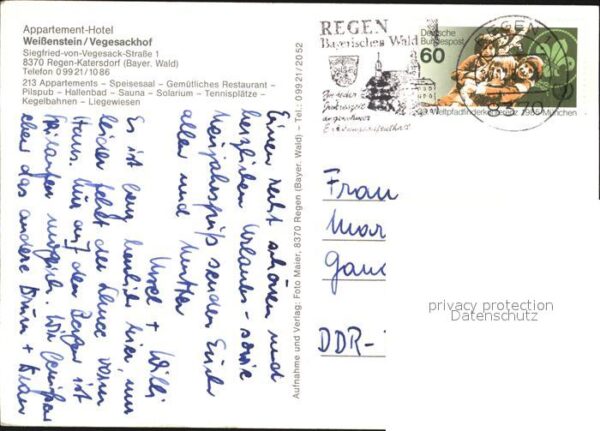 Appartement-Hotel
Weißenstein/Vegesackhof
Siegfried-von-Vegesack-Straße 1
8370 Regen-Katersdorf (Bayer. Wald)
Telefon 09921/1086
213 Appartements – Speisesaal – Gemütliches Restaurant –
Pilspub – Hallenbad – Sauna – Solarium – Tennisplätze –
Kegelbahnen – Liegewiesen
Einen recht schönen und
herzlichen Urlaubs- sowie
Neujahrsgruß senden Euch
allen und Mutter
Ursel + Willi
Es ist ganz herrlich hier, nur
leider fehlt der Schnee vorm
Haus. Nur auf den Bergen ist
Skilaufen möglich. Wir
aber das andere
Aufnahme und Verlag: Foto Maier, 8370 Regen (Bayer. Wald) – Tel.: 09921/2052
REGEN
Bayerisches Wald
Deutsche
Bundespost
60
Weltpfadfinderkonferenz München
Frau
Mar
Gau
DDR-
privacy protection
Datenschutz